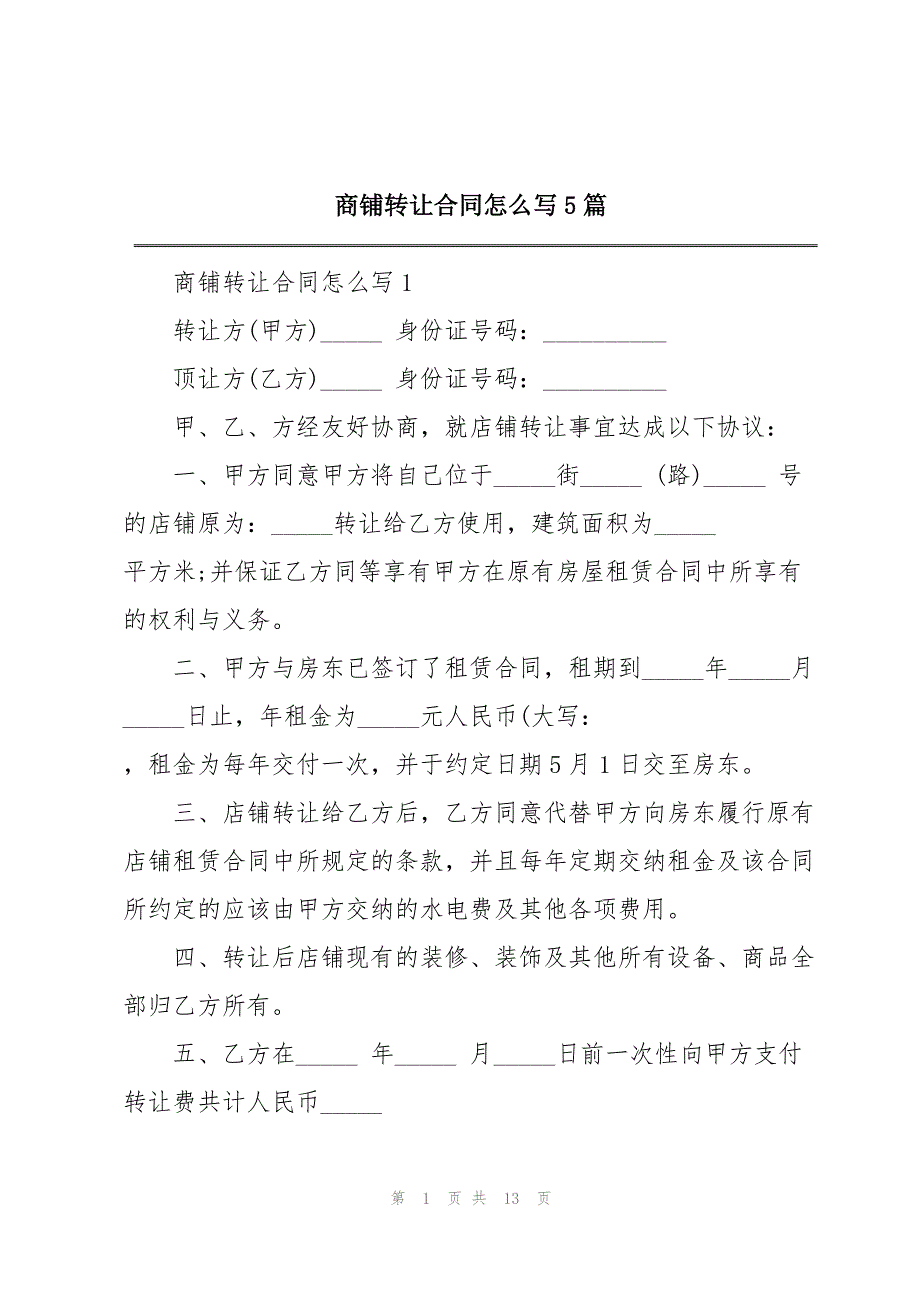 商铺转让合同怎么写 5 篇
商铺转让合同怎么写 1
转让方(甲方)_____ 身份证号码：__________
顶让方(乙方)_____ 身份证号码：__________
甲、乙、方经友好协商，就店铺转让事宜达成以下协议：
一、甲方同意甲方将自己位于_____街_____ (路)_____ 号
的店铺原为：_____转让给乙方使用，建筑面积为_____
平方米;并保证乙方同等享有甲方在原有房屋租赁合同中所享有
的权利与义务。
二、甲方与房东已签订了租赁合同，租期到_____年_____月
_____日止，年租金为_____元人民币(大写：
，租金为每年交付一次，并于约定日期 5 月 1 日交至房东。
三、店铺转让给乙方后，乙方同意代替甲方向房东履行原有
店铺租赁合同中所规定的条款，并且每年定期交纳租金及该合同
所约定的应该由甲方交纳的水电费及其他各项费用。
四、转让后店铺现有的装修、装饰及其他所有设备、商品全
部归乙方所有。
五、乙方在_____ 年_____ 月_____日前一次性向甲方支付
转让费共计人民币_____
第 1 页 共 13 页